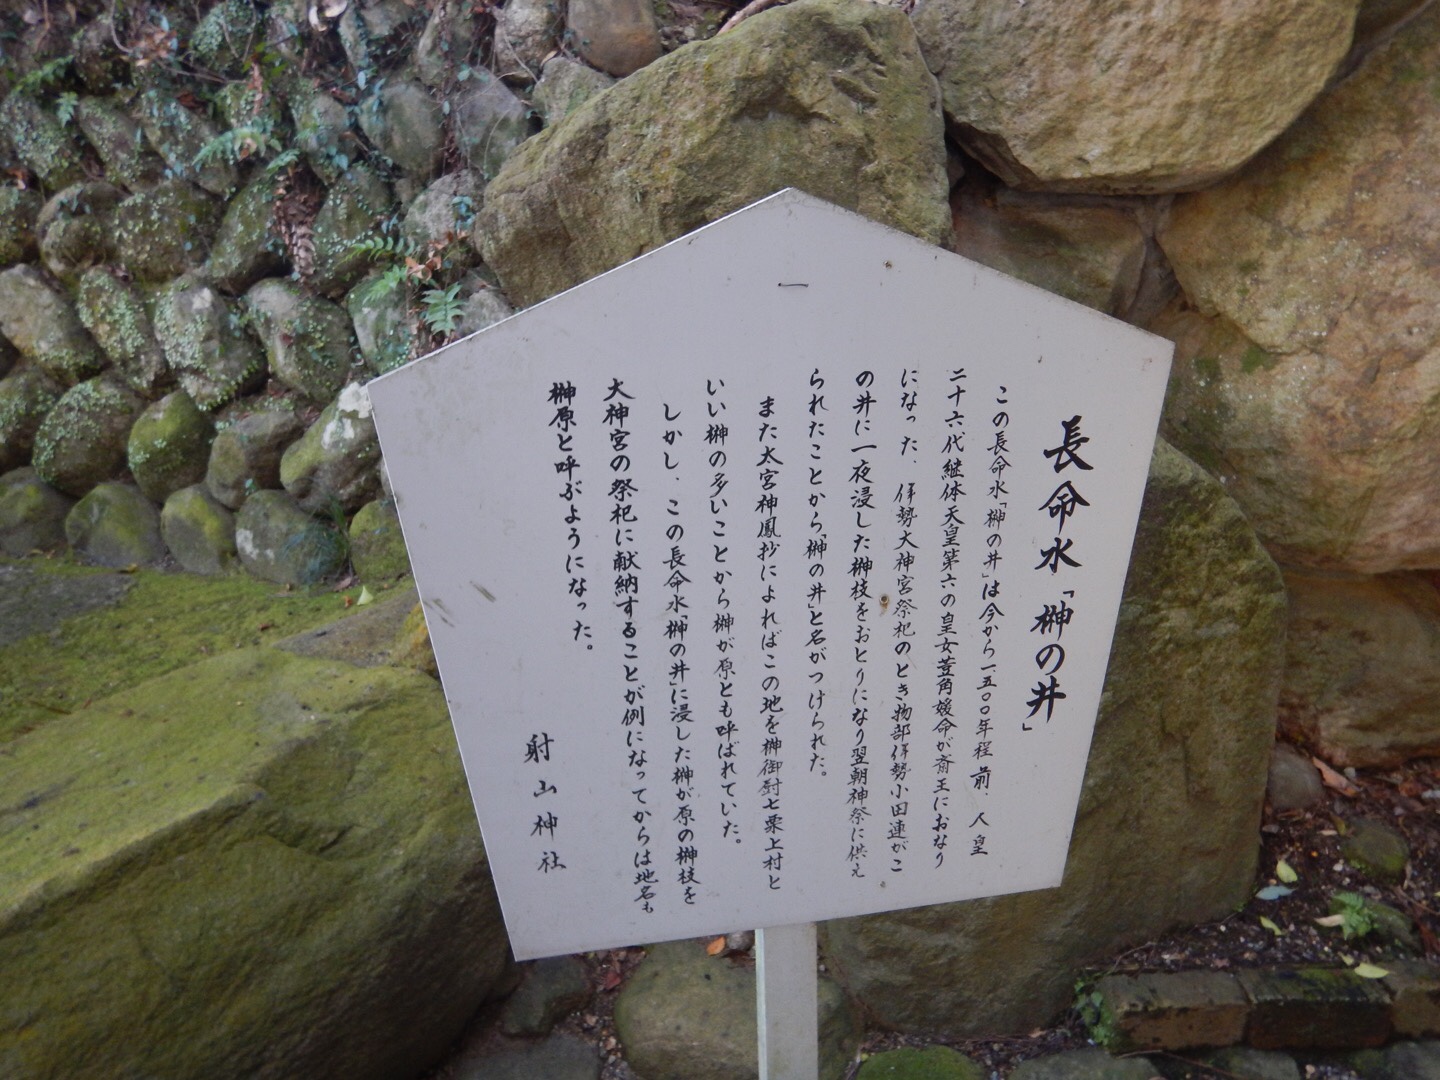 長命水「榊の井」
この長命水「榊の井」は今から一五〇〇年程前、人皇
二十六代継体天皇第六の皇女荳角媛命が斎王におなり
になった、伊勢大神宮祭祀のとき物部伊勢小田連がこ
の井に一夜浸した榊枝をおとりになり翌朝神祭に供え
られたことから「榊の井」と名がつけられた。
また太宮神鳳抄によればこの地を榊御厨七栗上村と
いい榊の多いことから榊が原とも呼ばれていた。
しかし、この長命水「榊の井」に浸した榊が原の榊枝を
大神宮の祭祀に献納することが例になってからは地名も
榊原と呼ぶようになった。
射山神社